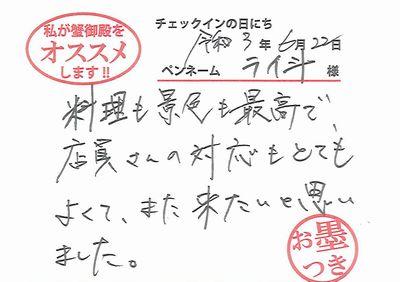 私が蟹御殿を
オススメ
します!!
チェックインの日にち
令和3年6月22日
ペンネーム ライ斗 様
料理も景色も最高で、
店員さんの対応もとても
よくて、また来たいと思い
ました。
お墨
つき